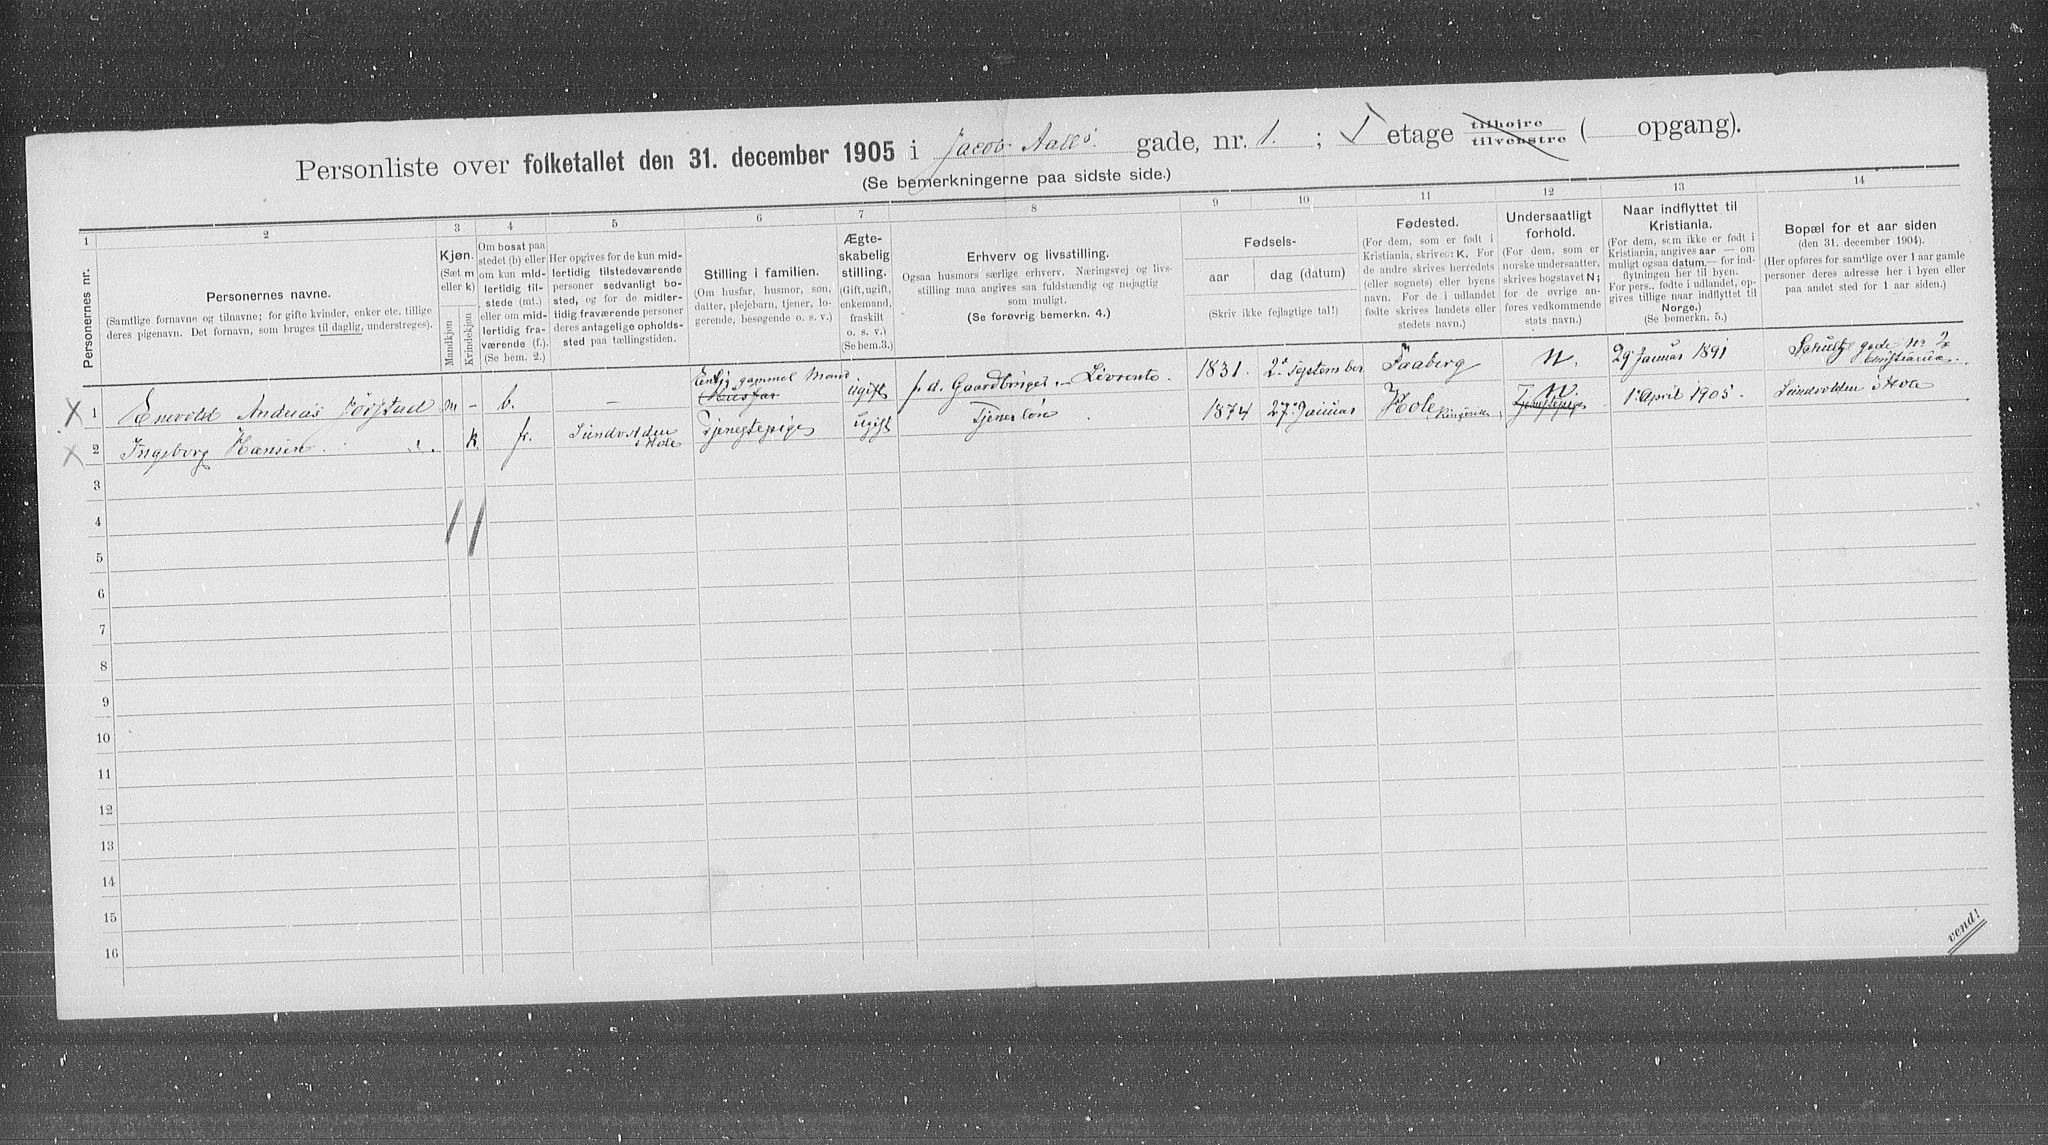 Personliste over folketallet den 31. december 1905 i Jacob Aalls gade, nr. 1. ; I etage tilhøjre tilvenstre ( opgang).
(Se bemerkningerne paa sidste side.)
1 2 3 4 5 6 7 8 9 10 11 12 13 14
Personernes nr.
Personernes navne.
(Samtlige fornavne og tilnavne; for gifte kvinder, enker etc. tillige
deres pigenavn. Det fornavn, som bruges til daglig, understreges).
Kjøn.
(Sæt m
eller k)
Mandkjøn
Kvindekjøn
Om bosat paa
stedet (b) eller
om kun mid-
lertidig til-
stede (mt.)
eller om mid-
lertidig fra-
værende (f.).
(Se bem. 2.)
Her opgives for de kun mid-
lertidig tilstedeværende
personer sedvanligt bo-
sted, og for de midler-
tidig fraværende personer
deres antagelige opholds-
sted paa tællingstiden.
Stilling i familien.
(Om husfar, husmor, søn,
datter, plejebarn, tjener, lo-
gerende, besøgende o. s. v.)
Ægte-
skabelig
stilling.
(Gift, ugift,
enkemand,
fraskilt
o. s. v.)
(Se bem.3.)
Erhverv og livsstilling.
Ogsaa husmors særlige erhverv. Næringsvej og livs-
stilling maa angives saa fuldstændig og nøjagtig
som muligt.
(Se forøvrig bemerkn. 4.)
Fødsels-
aar
dag (datum)
(Skriv ikke fejlagtige tal!)
Fødested.
(For dem, som er født i
Kristiania, skrives: K. For
de andre skrives herredets
(eller sognets) eller byens
navn. For de i udlandet
fødte skrives landets eller
stedets navn.)
Undersaatligt
forhold.
(For dem, som er
norske undersaatter,
skrives bogstavet N;
for de øvrige an-
føres vedkommende
stats navn.)
Naar indflyttet til
Kristiania.
(For dem, som ikke er født i
Kristiania, angives aar — om
muligt ogsaa datum — for ind-
flytningen her til byen.
For pers., fødte i udlandet, op-
gives tillige naar indflyttet til
Norge.)
(Se bemerkn. 5.)
Bopæl for et aar siden
(den 31. december 1904).
(Her opføres for samtlige over 1 aar gamle
personer deres adresse her i byen eller
paa andet sted for 1 aar siden.)
X 1 Enevold Andreas Jørstad m - b. — Enlig gammel Mand Husfar ugift f. d. Gaardbruger Livrente. 1831. 2 September Faaberg N. 29 Januar 1891 Schultz gade No Christiania.
X 2 Ingeborg Hansen k. fr. Sundvolden i Hole Tjenestepige ugift Tjenerløn 1874 27 Januar Hole Ringerike N. Tjenestepige 1 April 1905 Sundvolden i Hole
3
4
5
6
7
8
9
10
11
12
13
14
15
16
vend!